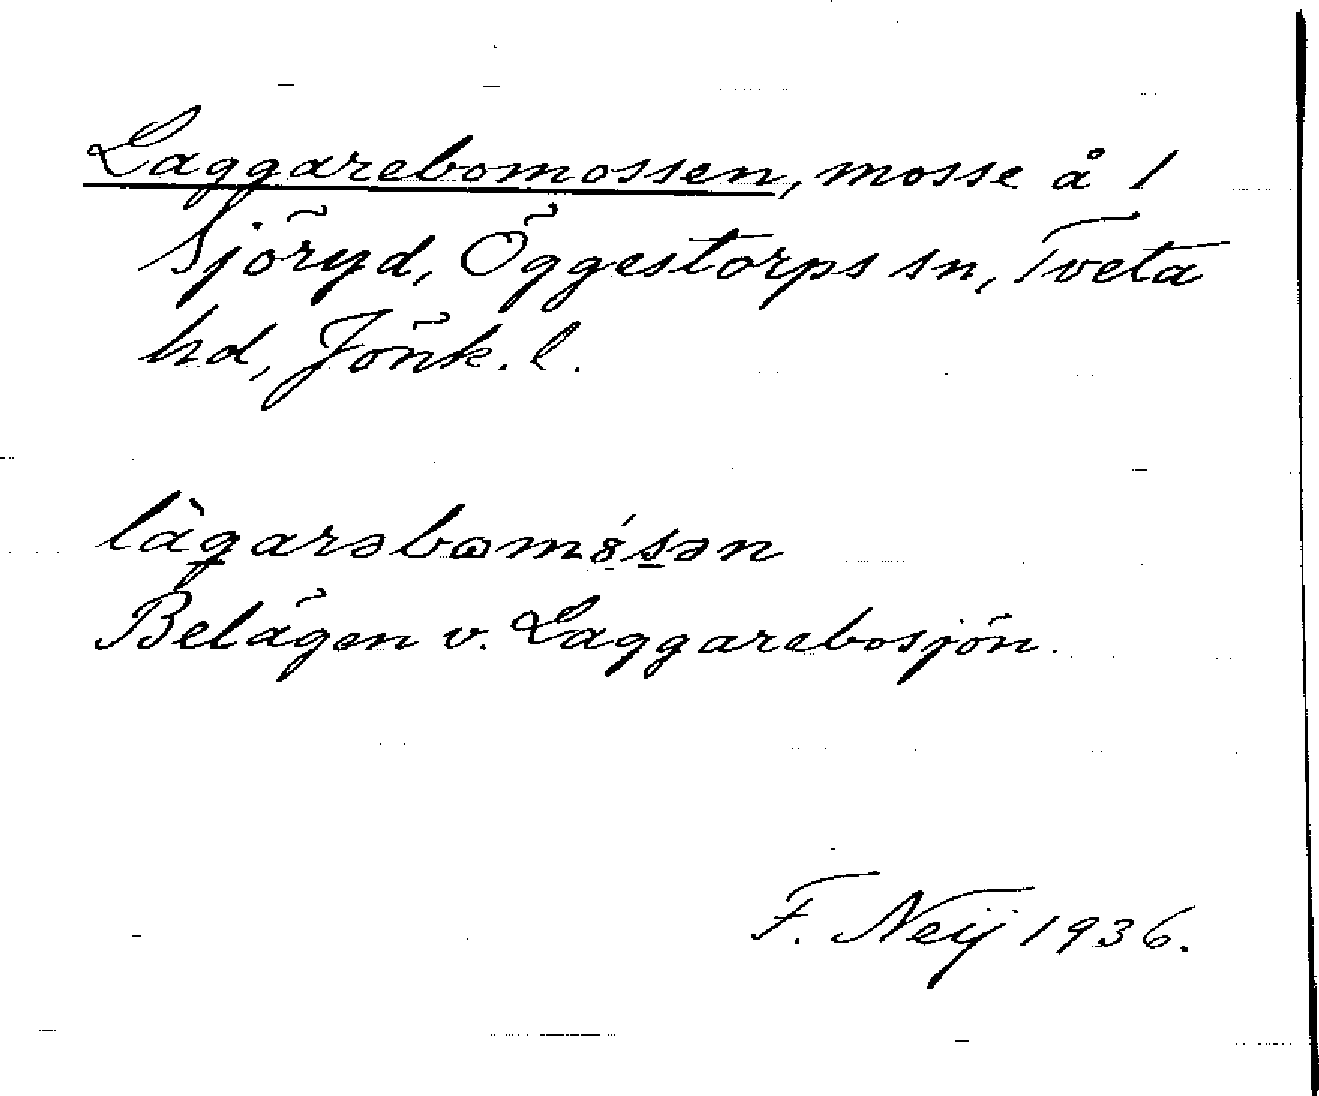 Laggarebomossen, mosse å 1
Sjöryd, Öggestorps sn, Tveta
hd, Jönk. l.
làgarəbɷmȣ́sən
Belägen v. Laggarebosjön.
F. Neij 1936.